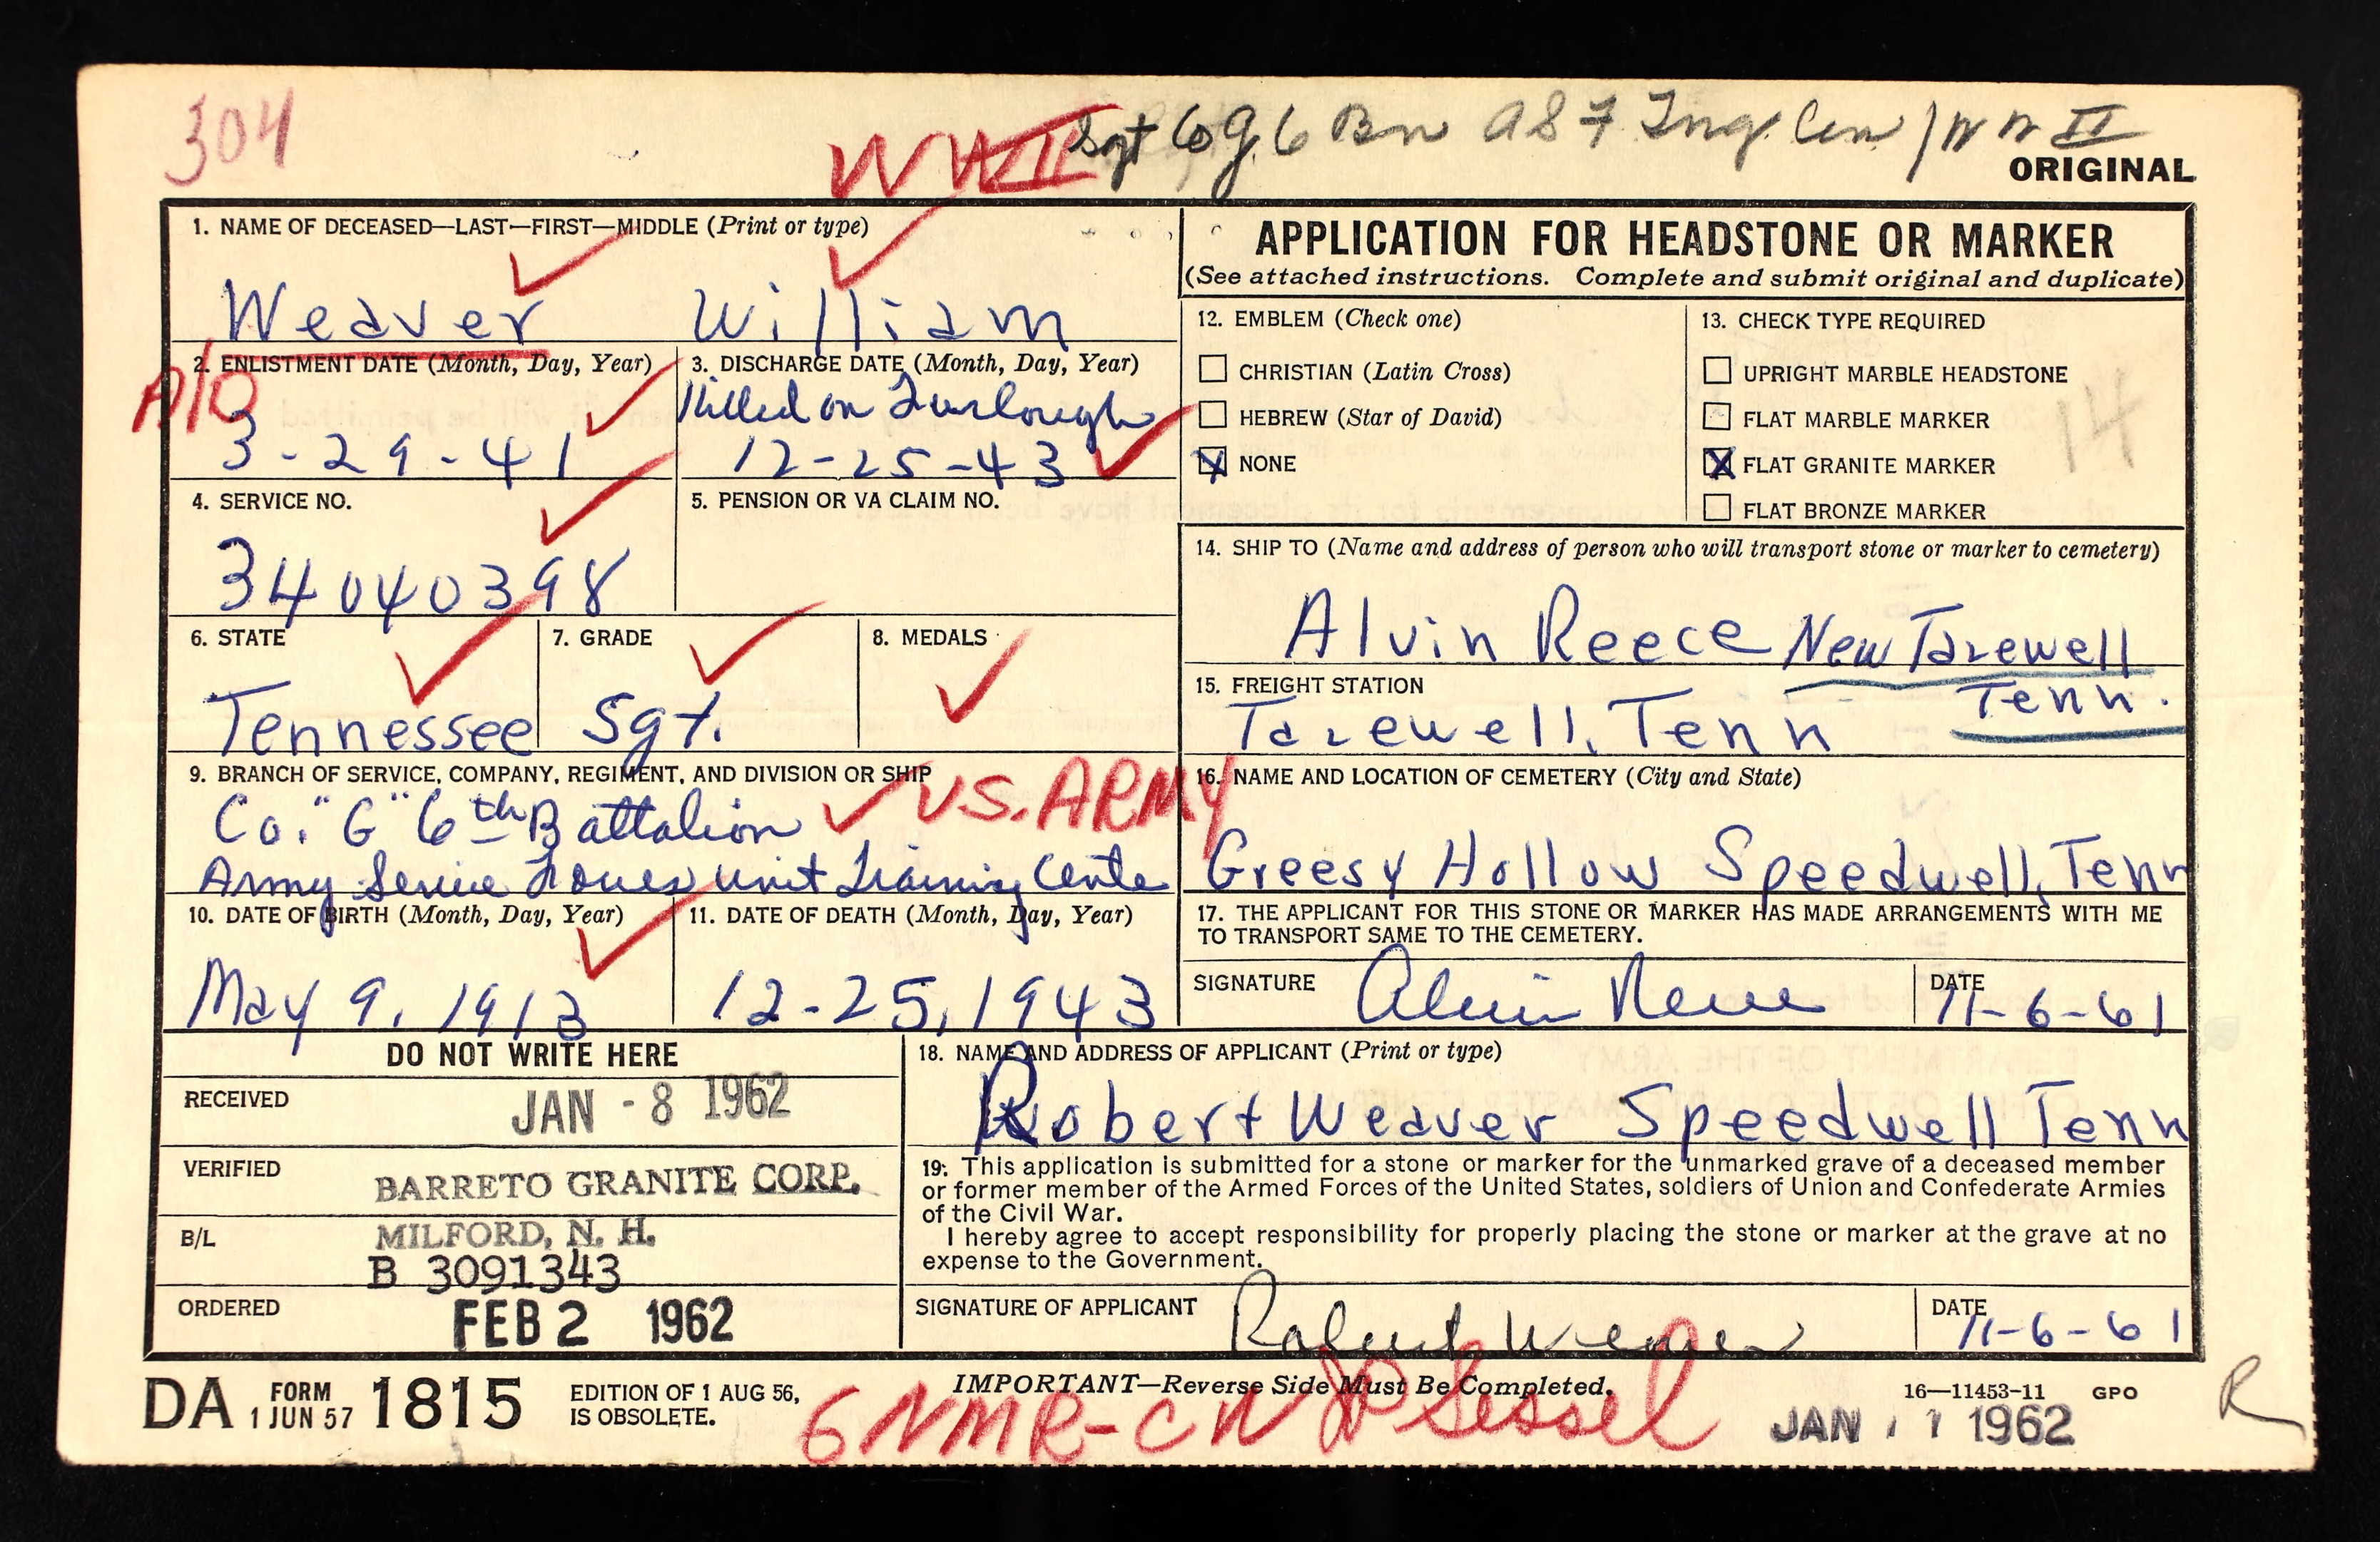 304
WWII Sgt Co G 6 Bn ASF Tng Cen / WW II
ORIGINAL
1. NAME OF DECEASED—LAST—FIRST—MIDDLE (Print or type)
Weaver William
A/O
2. ENLISTMENT DATE (Month, Day, Year)
3-29-41
3. DISCHARGE DATE (Month, Day, Year)
Killed on Furlough
12-25-43
4. SERVICE NO.
34040398
5. PENSION OR VA CLAIM NO.
6. STATE
Tennessee
7. GRADE
Sgt.
8. MEDALS
9. BRANCH OF SERVICE, COMPANY, REGIMENT, AND DIVISION OR SHIP
Co. "G" 6th Battalion US. ARMY
Army Service Forces unit Training Cente
10. DATE OF BIRTH (Month, Day, Year)
May 9, 1913
11. DATE OF DEATH (Month, Day, Year)
12-25, 1943
APPLICATION FOR HEADSTONE OR MARKER
(See attached instructions. Complete and submit original and duplicate)
12. EMBLEM (Check one)
CHRISTIAN (Latin Cross)
HEBREW (Star of David)
X NONE
13. CHECK TYPE REQUIRED
UPRIGHT MARBLE HEADSTONE
FLAT MARBLE MARKER
X FLAT GRANITE MARKER
FLAT BRONZE MARKER
14
14. SHIP TO (Name and address of person who will transport stone or marker to cemetery)
Alvin Reece New Tazewell
Tenn.
15. FREIGHT STATION
Tazewell, Tenn
16. NAME AND LOCATION OF CEMETERY (City and State)
Greesy Hollow Speedwell, Tenn
17. THE APPLICANT FOR THIS STONE OR MARKER HAS MADE ARRANGEMENTS WITH ME
TO TRANSPORT SAME TO THE CEMETERY.
SIGNATURE Alvin Reece
DATE 11-6-61
DO NOT WRITE HERE
RECEIVED JAN - 8 1962
VERIFIED BARRETO GRANITE CORP.
MILFORD, N. H.
B/L B 3091343
ORDERED FEB 2 1962
18. NAME AND ADDRESS OF APPLICANT (Print or type)
Robert Weaver Speedwell Tenn
19. This application is submitted for a stone or marker for the unmarked grave of a deceased member
or former member of the Armed Forces of the United States, soldiers of Union and Confederate Armies
of the Civil War.
I hereby agree to accept responsibility for properly placing the stone or marker at the grave at no
expense to the Government.
SIGNATURE OF APPLICANT Robert Weaver
DATE 11-6-61
DA FORM 1 JUN 57 1815
EDITION OF 1 AUG 56,
IS OBSOLETE.
IMPORTANT—Reverse Side Must Be Completed.
16—11453-11 GPO
6NMR-CW
JAN 11 1962
R